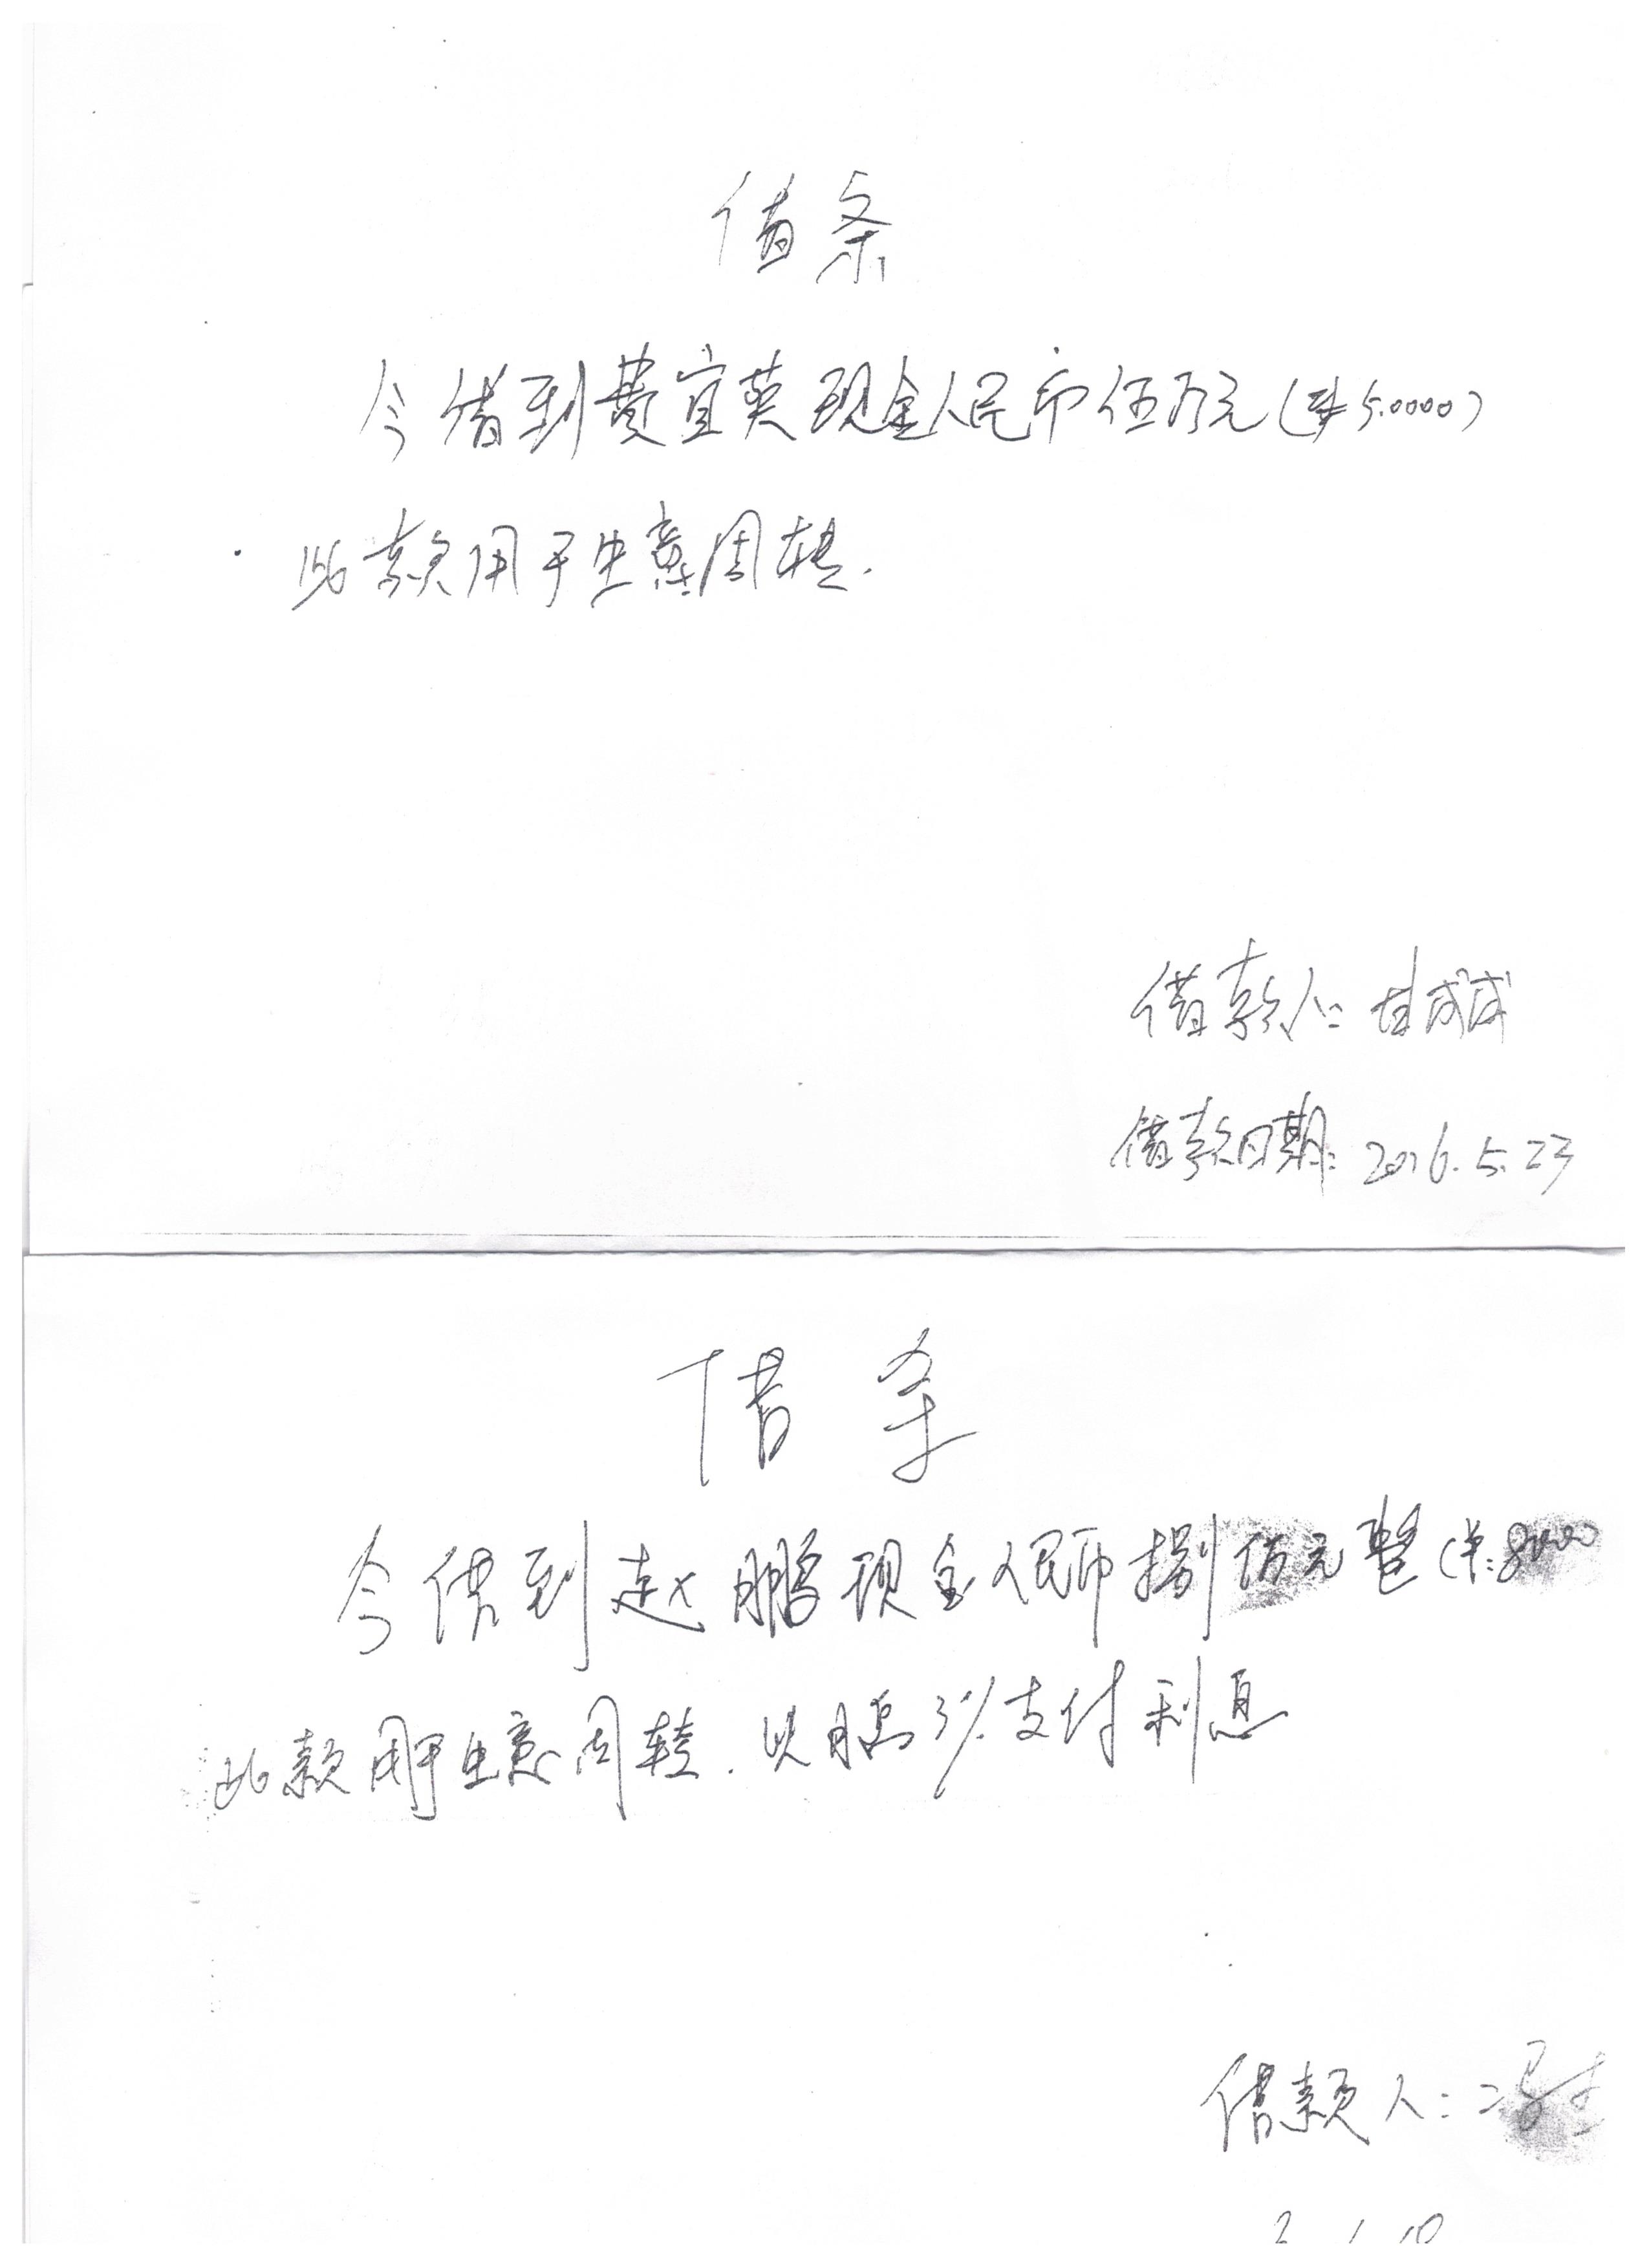 借条
今借到费宜英现金人民币伍万元(¥5.0000)
此款用于生意周转.
借款人:
借款日期: 2016.5.23
借条
今借到赵鹏现金人民币捌佰元整(¥:
此款用于生意周转.以月息3%支付利息
借款人:冯